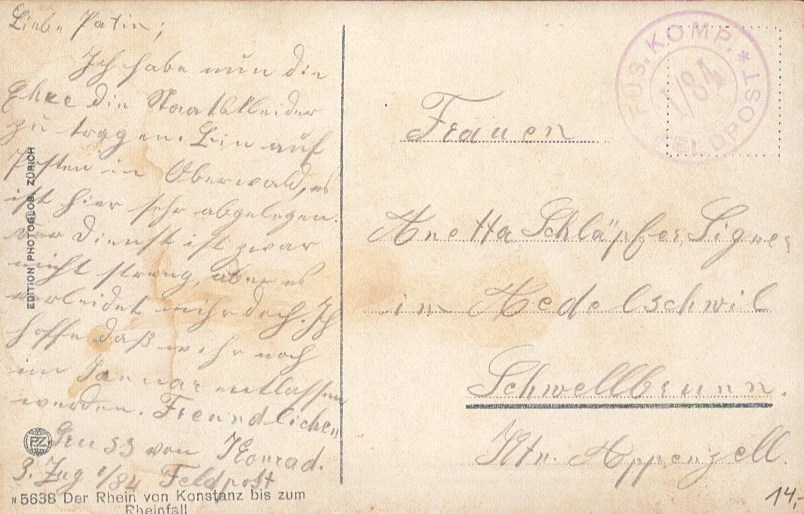 Liebe Patin;
Ich habe nun die
Ehre die Staatskleider
zu tragen. Bin auf
Posten in Oberwald, es
ist hier sehr abgelegen.
Der Dienst ist zwar
nicht streng, aber es
verleidet mir doch. Ich
hoffe daß wir noch
im Januar entlassen
werden. Freundlichen
Gruss von Konrad.
3. Zug 1/84 Feldpost
EDITION PHOTOGLOB, ZÜRICH
PZ
N 5638 Der Rhein von Konstanz bis zum
Rheinfall
FÜS. KOMP. * FELDPOST
1/84
Frauen
Anetta Schläpfer, Signer
in Hedelschwil
Schwellbrunn.
Ktn. Appenzell.
14,-